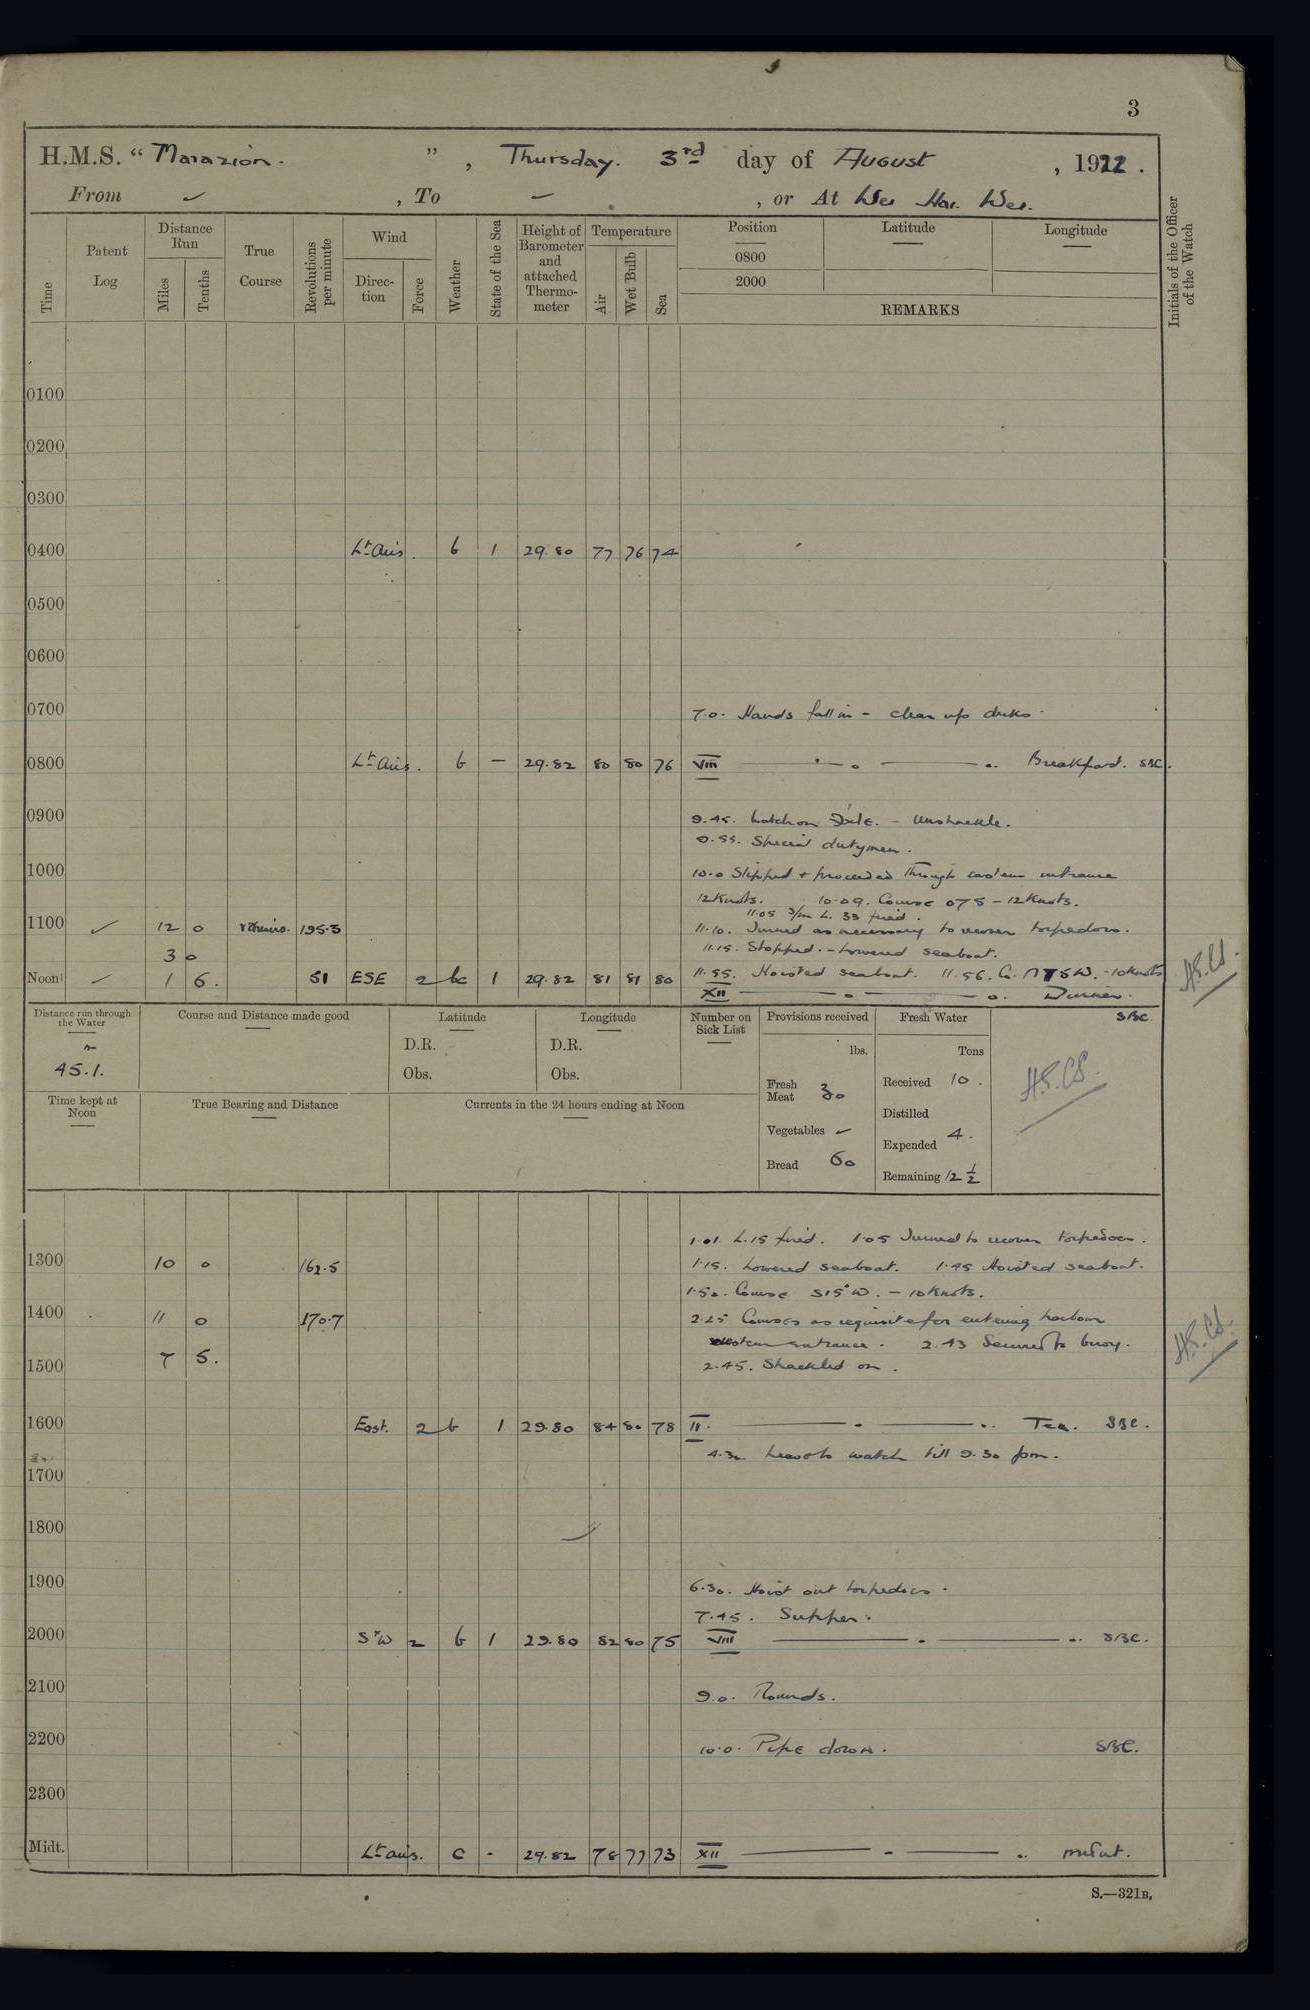 3
H.M.S. “ Marazion. ” , Thursday. 3rd day of August , 1922 .
From ✓ , To – , or At Wei Hai Wei.
Time
Patent Log
Distance Run
Miles
Tenths
True Course
Revolutions per minute
Wind
Direction
Force
Weather
State of the Sea
Height of Barometer and attached Thermometer
Temperature
Air
Wet Bulb
Sea
Position
0800
2000
Latitude
Longitude
REMARKS
Initials of the Officer of the Watch
0100
0200
0300
0400 Lt airs. b 1 29.80 77 76 74
0500
0600
0700 7.0. Hands fall in – clean up decks.
0800 Lt airs. b — 29.82 80 80 76 VIII — . — Breakfast. SBC.
0900 9.45. – Unshackle.
9.55. Special dutymen.
1000 10.0 Slipped + proceeded through eastern entrance
12 Knots. 10.09. Course 075 – 12 Knots.
11.05 L. 33 fired.
1100 ✓ 12 0 various. 195.3 11.10. Turned as necessary to recover torpedoes.
3 0 11.15. Stopped. – Lowered seaboat.
Noon ✓ 1 6. 51 ESE 2 bc 1 29.82 81 81 80 11.55. Hoisted seaboat. 11.56. Co. – 10 Knots
XII — o — o. Dinner.
SBC
Distance run through the Water
45.1.
Course and Distance made good
Latitude
D.R.
Obs.
Longitude
D.R.
Obs.
Number on Sick List
Provisions received
lbs.
Fresh Meat 30
Vegetables ✓
Bread 60
Fresh Water
Tons
Received 10.
Distilled
Expended 4.
Remaining 12 ½
Time kept at Noon
True Bearing and Distance
Currents in the 24 hours ending at Noon
1.01. L.15 fired. 1.05 Turned to recover torpedoes.
1300 10 0 162.5 1.15. Lowered seaboat. 1.45 Hoisted seaboat.
1.50. Course S15°W. – 10 Knots.
1400 11 0 170.7 2.25 Courses as requisite for entering harbour
7 5. western entrance. 2.43 Secured to buoy.
1500 2.45. Shackled on.
1600 East. 2 b 1 29.80 84 80 78 — . — Tea. SBC.
4.30 Leave to watch till 9.30 pm.
1700
1800
1900 6.30. Hoist out torpedoes.
7.45. Supper.
2000 S'W 2 b 1 29.80 82 80 75 VIII — . — SBC.
2100 9.0. Rounds.
2200 10.0. Pipe down. SBC.
2300
Midt. Lt airs. c - 29.82 78 77 73 XII — . —
S.—321B.